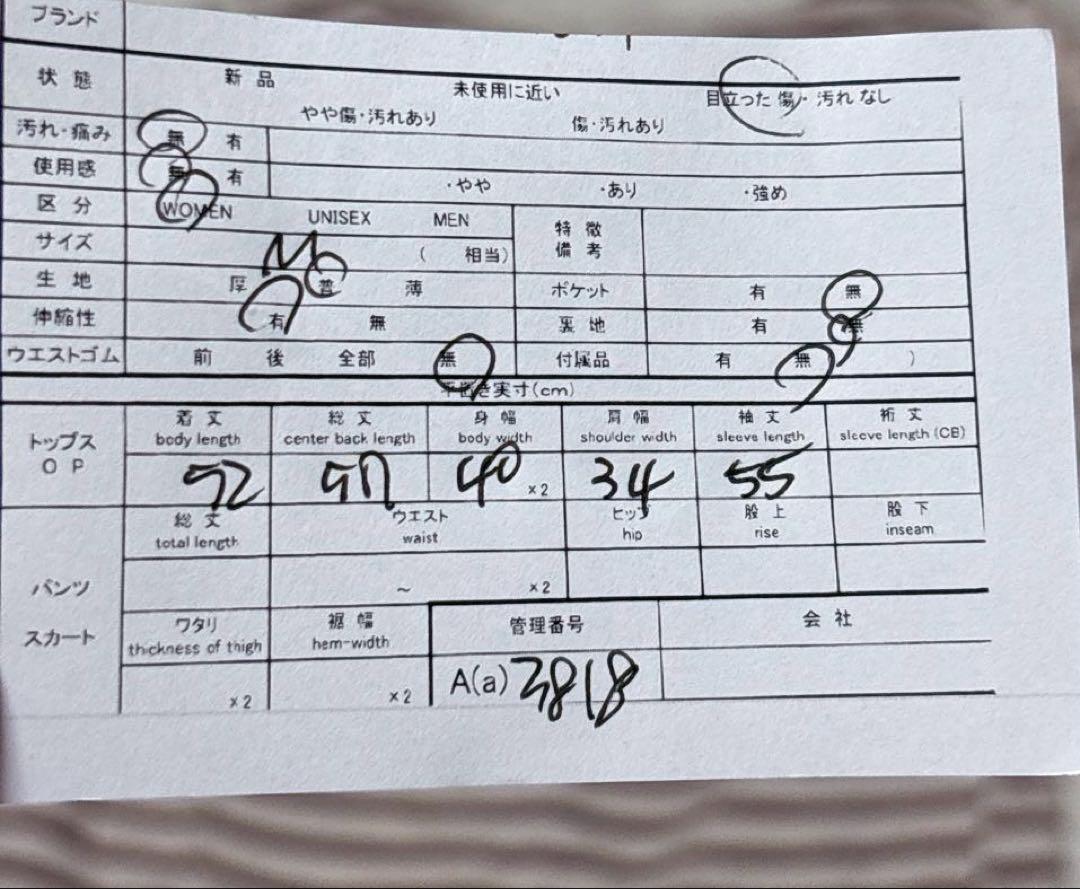 ブランド
状態 新品 未使用に近い 目立った傷・汚れなし
やや傷・汚れあり 傷・汚れあり
汚れ・痛み 無 有
使用感 無 有 ・やや ・あり ・強め
区分 WOMEN UNISEX MEN 特徴備考
サイズ M ( 相当)
生地 厚 普 薄 ポケット 有 無
伸縮性 有 無 裏地 有 無
ウエストゴム 前 後 全部 無 付属品 有 無 )
平置き実寸(cm)
トップス OP
着丈 総丈 身幅 肩幅 袖丈 裄丈
body length center back length body width shoulder width sleeve length sleeve length (CB)
40 ×2 34 55
総丈 ウエスト ヒップ 股上 股下
total length waist hip rise inseam
パンツ ~ ×2
スカート
ワタリ 裾幅 管理番号 会社
thickness of thigh hem-width
×2 ×2 A(a) 3818